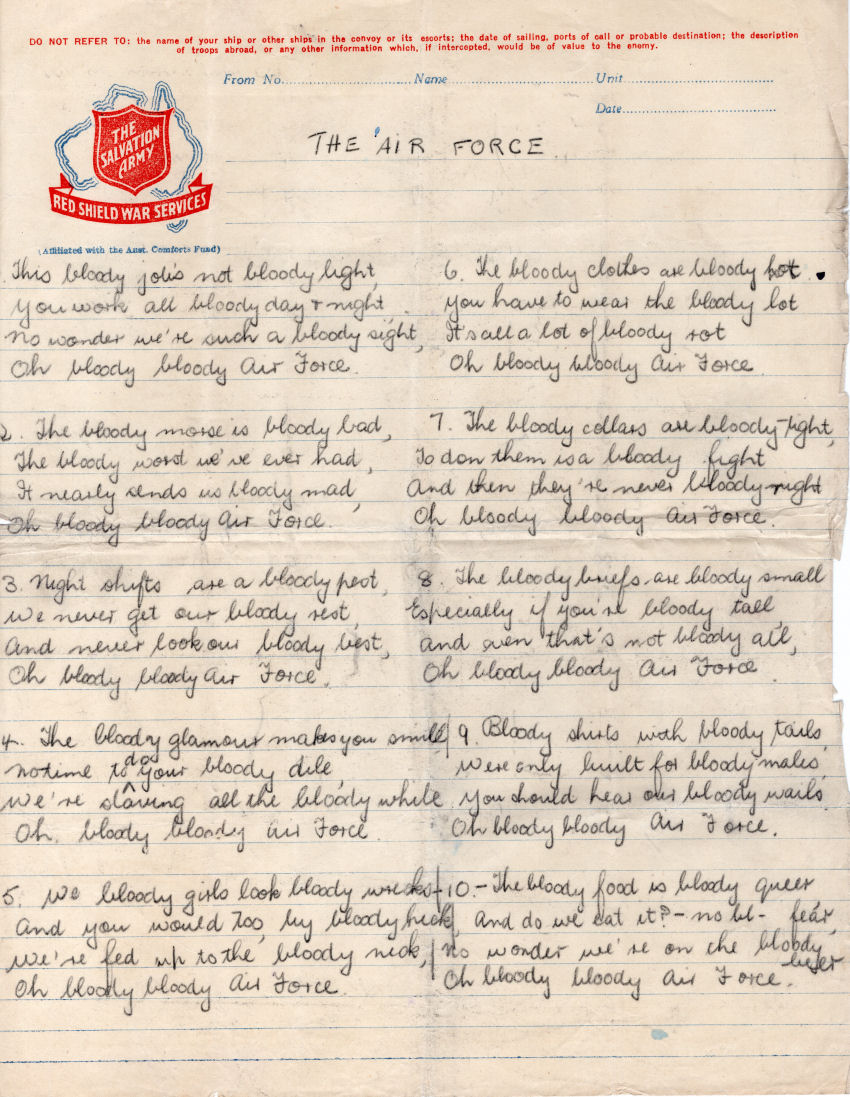 DO NOT REFER TO: the name of your ship or other ships in the convoy or its escorts; the date of sailing, ports of call or probable destination; the description
of troops abroad, or any other information which, if intercepted, would be of value to the enemy.
From No. Name Unit
Date
THE
SALVATION
ARMY
RED SHIELD WAR SERVICES
(Affiliated with the Aust. Comforts Fund)
THE AIR FORCE
This bloody job's not bloody light,
You work all bloody day & night
No wonder we're such a bloody sight,
Oh bloody bloody Air Force.
2. The bloody morse is bloody bad,
The bloody worst we've ever had,
It nearly sends us bloody mad,
Oh bloody bloody Air Force.
3. Night shifts are a bloody pest,
We never get our bloody rest,
And never look our bloody best,
Oh bloody bloody Air Force.
4. The bloody glamour makes you smile
No time to do your bloody dile,
We're slaving all the bloody while
Oh. bloody bloody Air Force.
5. We bloody girls look bloody wrecks
And you would too, by bloody heck,
We're fed up to the bloody neck,
Oh bloody bloody Air Force.
6. The bloody clothes are bloody hot.
You have to wear the bloody lot
It's all a lot of bloody rot
Oh bloody bloody Air Force.
7. The bloody collars are bloody tight,
To don them is a bloody fight
And then they're never bloody right
Oh bloody bloody Air Force.
8. The bloody briefs are bloody small
Especially if you're bloody tall
And even that's not bloody all,
Oh bloody bloody Air Force
9. Bloody shirts with bloody tails
Were only built for bloody males
You should hear our bloody wails
Oh bloody bloody Air Force.
10.- The bloody food is bloody queer
And do we eat it? - no bl- fear,
No wonder we're on the bloody
beer
Oh bloody bloody Air Force.